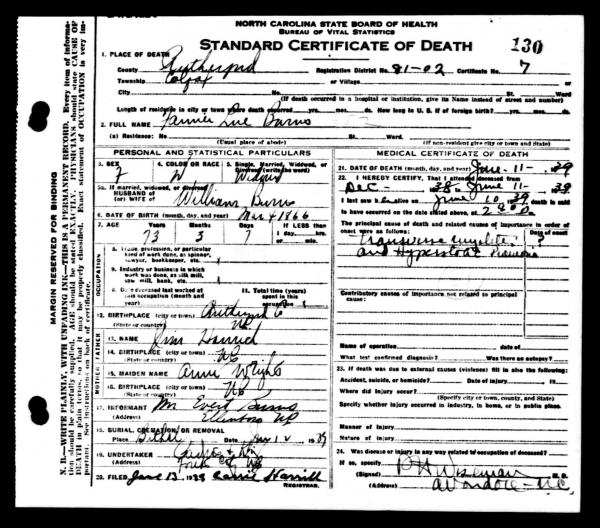 NORTH CAROLINA STATE BOARD OF HEALTH
BUREAU OF VITAL STATISTICS
STANDARD CERTIFICATE OF DEATH 130
1. PLACE OF DEATH
County Rutherford Registration District No. 81-02 Certificate No. 7
Township Colfax or Village
City No. St. Ward
(If death occurred in a hospital or institution, give its Name instead of street and number)
Length of residence in city or town where death occurred yrs. mos. ds. How long in U. S. if of foreign birth? yrs. mos. ds.
2. FULL NAME Fannie Sue Burns
(a) Residence: No. St. Ward.
(Usual place of abode) (If non-resident give city or town and State)
PERSONAL AND STATISTICAL PARTICULARS
3. SEX 4. COLOR OR RACE 5. Single, Married, Widowed, or Divorced (write the word)
F W Widow
5a. If married, widowed, or divorced
HUSBAND of
(or) WIFE of William Burns
6. DATE OF BIRTH (month, day, and year) Mar 4 1866
7. AGE Years Months Days If LESS than
73 3 7 1 day, hrs.
or min.
OCCUPATION
8. Trade, profession, or particular
kind of work done, as spinner,
sawyer, bookkeeper, etc.
9. Industry or business in which
work was done, as silk mill,
saw mill, bank, etc.
10. Date deceased last worked at
this occupation (month and
year)
11. Total time (years)
spent in this
occupation
12. BIRTHPLACE (city or town) Rutherford C
(State or country) NC
FATHER
13. NAME Jim
14. BIRTHPLACE (city or town) NC
(State or country)
MOTHER
15. MAIDEN NAME Annie Wright
16. BIRTHPLACE (city or town) NC
(State or country)
17. INFORMANT Mr Burns
(Address) Ellenboro NC
18. BURIAL, CREMATION OR REMOVAL
Place Bethel Date 12 1939
19. UNDERTAKER
(Address) Forest City NC
20. FILED June 13, 1939 Carrie Harrill
REGISTRAR.
MEDICAL CERTIFICATE OF DEATH
21. DATE OF DEATH (month, day, and year) June-11-39
22. I HEREBY CERTIFY, That I attended deceased from
Dec- 38, to June 11- 39
I last saw h er alive on June 10, 39 death is said
to have occurred on the date stated above, at 2
The principal cause of death and related causes of importance in order of
onset were as follows: Date of onset
Transverse myelitis ?
and Hypostatic Pneumonia
Contributory causes of importance not related to principal
cause:
Name of operation date of
What test confirmed diagnosis? Was there an autopsy?
23. If death was due to external causes (violence) fill in also the following:
Accident, suicide, or homicide? Date of injury 19
Where did injury occur?
(Specify city or town, county, and State)
Specify whether injury occurred in industry, in home, or in public place.
Manner of injury
Nature of injury
24. Was disease or injury in any way related to occupation of deceased?
If so, specify
(Signed) Wiseman M. D.
(Address) Avondale - N.C.
MARGIN RESERVED FOR BINDING
N. B.—WRITE PLAINLY, WITH UNFADING INK—THIS IS A PERMANENT RECORD. Every item of information should be carefully supplied. AGE should be stated EXACTLY. PHYSICIANS should state CAUSE OF DEATH in plain terms, so that it may be properly classified. Exact statement of OCCUPATION is very important. See instructions on back of certificate.